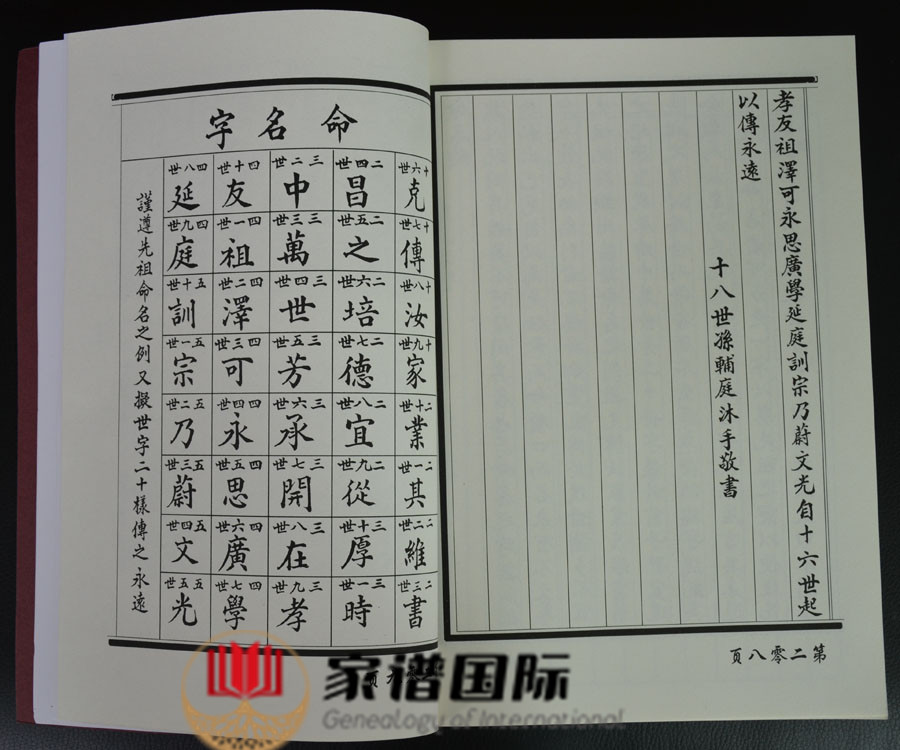 孝友祖澤可永思廣學延庭訓宗乃蔚文光自十六世起
以傳永遠
十八世孫輔庭沐手敬書
第二零八頁
命名字
十六世
克
十七世
傳
十八世
汝
十九世
家
二十世
業
二一世
其
二二世
維
二三世
書
二四世
昌
二五世
之
二六世
培
二七世
德
二八世
宜
二九世
從
三十世
厚
三一世
時
三二世
中
三三世
萬
三四世
世
三五世
芳
三六世
承
三七世
開
三八世
在
三九世
孝
四十世
友
四一世
祖
四二世
澤
四三世
可
四四世
永
四五世
思
四六世
廣
四七世
學
四八世
延
四九世
庭
五十世
訓
五一世
宗
五二世
乃
五三世
蔚
五四世
文
五五世
光
謹遵先祖命名之例又擬世字二十樣傳之永遠
家谱国际
Genealogy of International